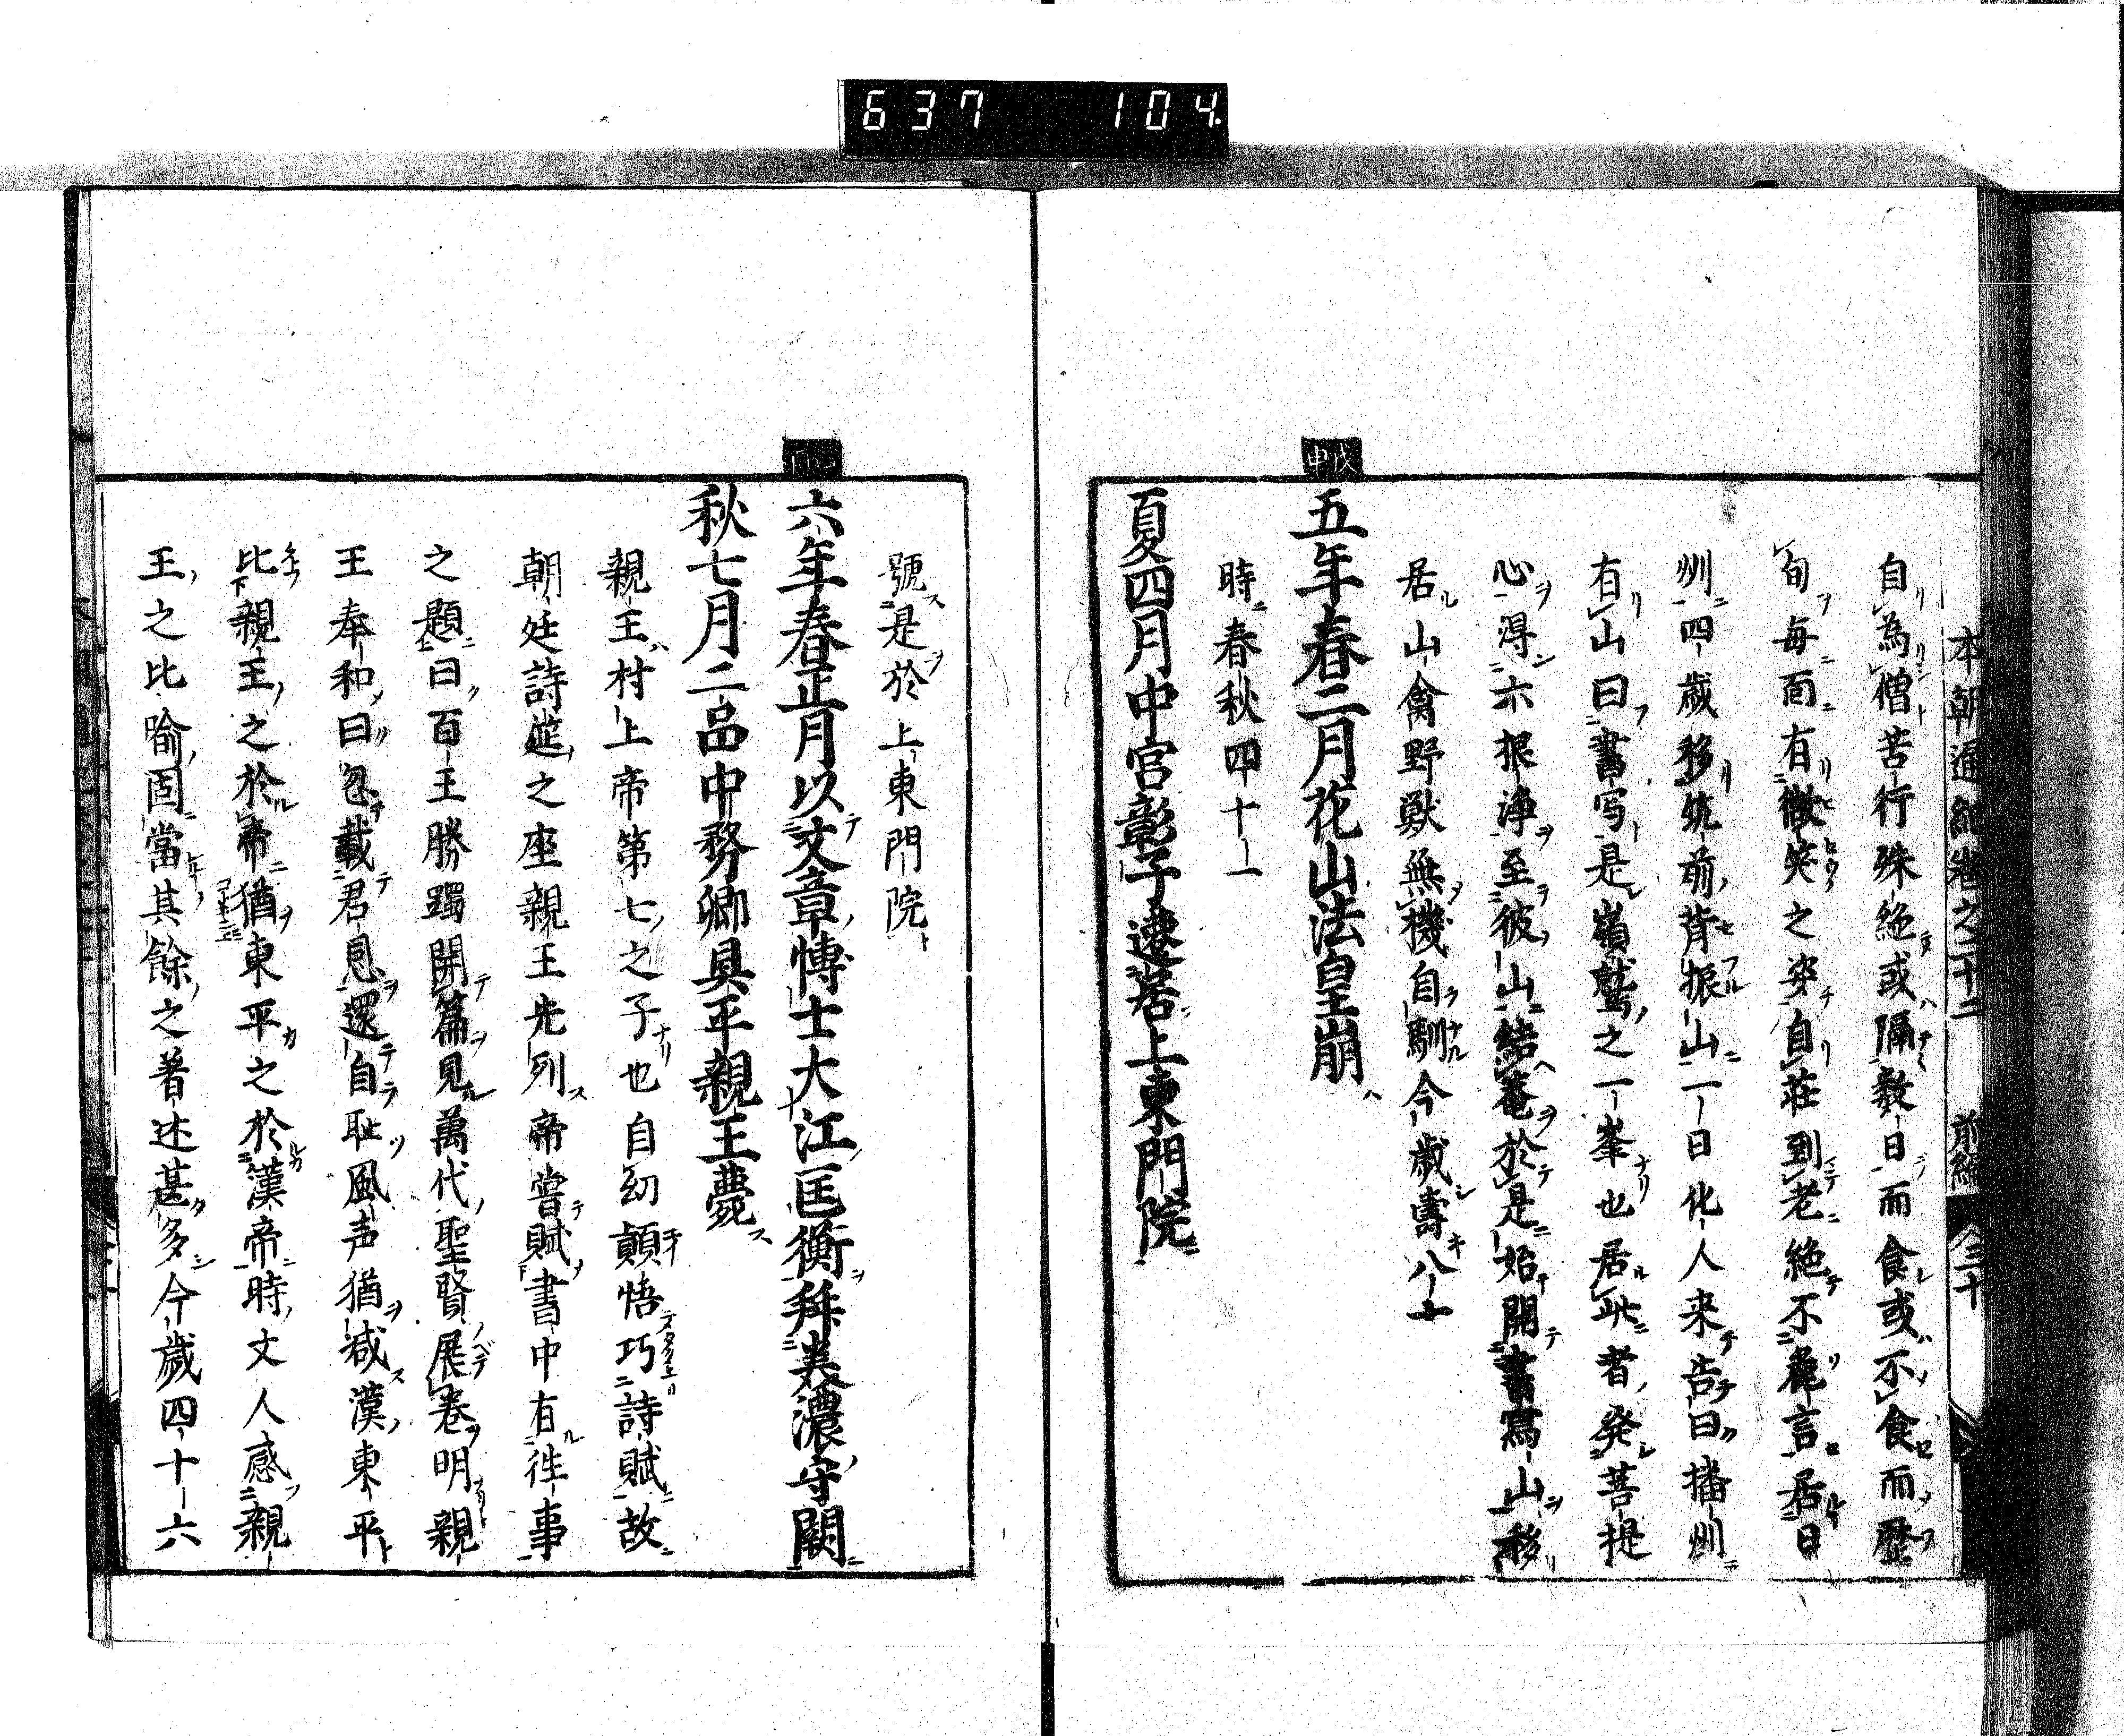 637 104
本朝通紀卷之十二 前編 三十
自為僧苦行殊絶或隔数日而食或不食而歴
旬毎面有微笑之姿自荘到老絶不麁言居日
州四歳移筑前背振山一日化人来告曰播州
有山曰書写是嶺鷲之一峯也居此者発菩提
心得六根浄至彼山結菴於是始開書寫山移
居山禽野獣無機自馴今歳壽八十
戊申
五年春二月花山法皇崩
時春秋四十一
夏四月中宮彰子遷居上東門院
號是於上東門院
六年春正月以文章博士大江匡衡拜美濃守闕
秋七月二品中務卿具平親王薨
親王村上帝第七之子也自幼顛悟巧詩賦故
朝廷詩莚之座親王先列帝嘗賦書中有徃事
之題曰百王勝躅開篇見萬代聖賢展巻明親
王奉和曰忽載君恩還自耻風声猶减漢東平
比親王之於帝猶東平之於漢帝時文人感親
王之比喻固當其餘之著述甚多今歳四十六